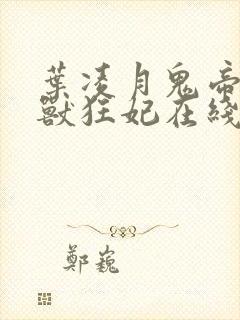 葉凌月鬼帝
獸狂妃在綫
鄭巍